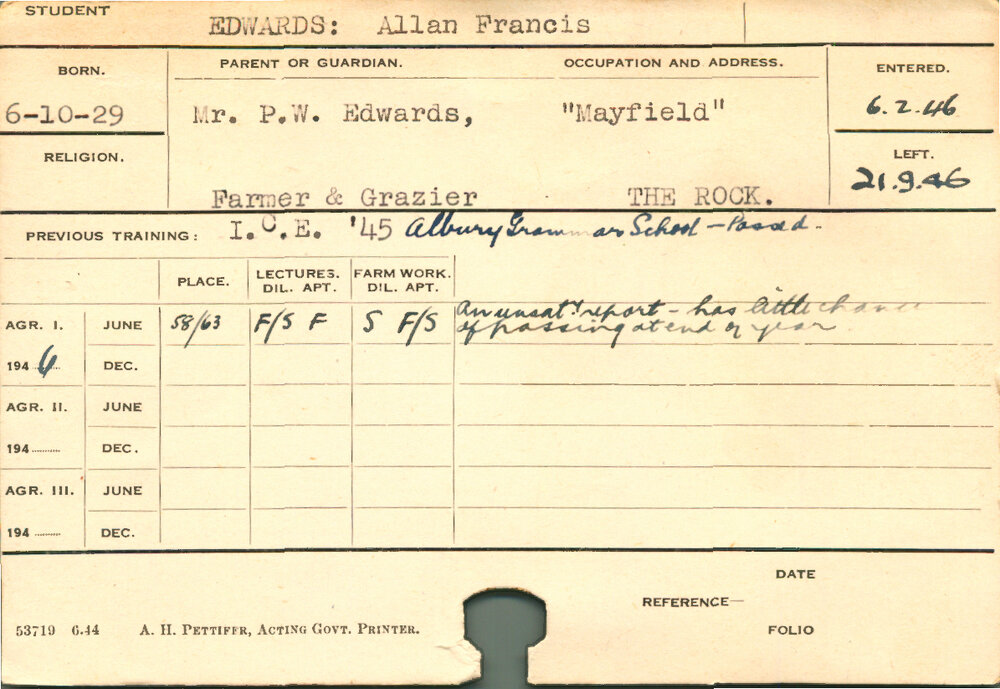 STUDENT
EDWARDS: Allan Francis
BORN. PARENT OR GUARDIAN. OCCUPATION AND ADDRESS. ENTERED.
6-10-29 Mr. P.W. Edwards, "Mayfield" 6.2.46
RELIGION. LEFT.
21.9.46
Farmer & Grazier THE ROCK.
PREVIOUS TRAINING: I.C.E. '45 Albury Grammar School - Passed.
PLACE. LECTURES. FARM WORK.
DIL. APT. DIL. APT.
AGR. I. JUNE 58/63 F/S F S F/S An unsaty report - has little chance
of passing at end of year
1946 DEC.
AGR. II. JUNE
194 DEC.
AGR. III. JUNE
194 DEC.
DATE
REFERENCE—
53719 6.44 A. H. PETTIFER, ACTING GOVT. PRINTER. FOLIO